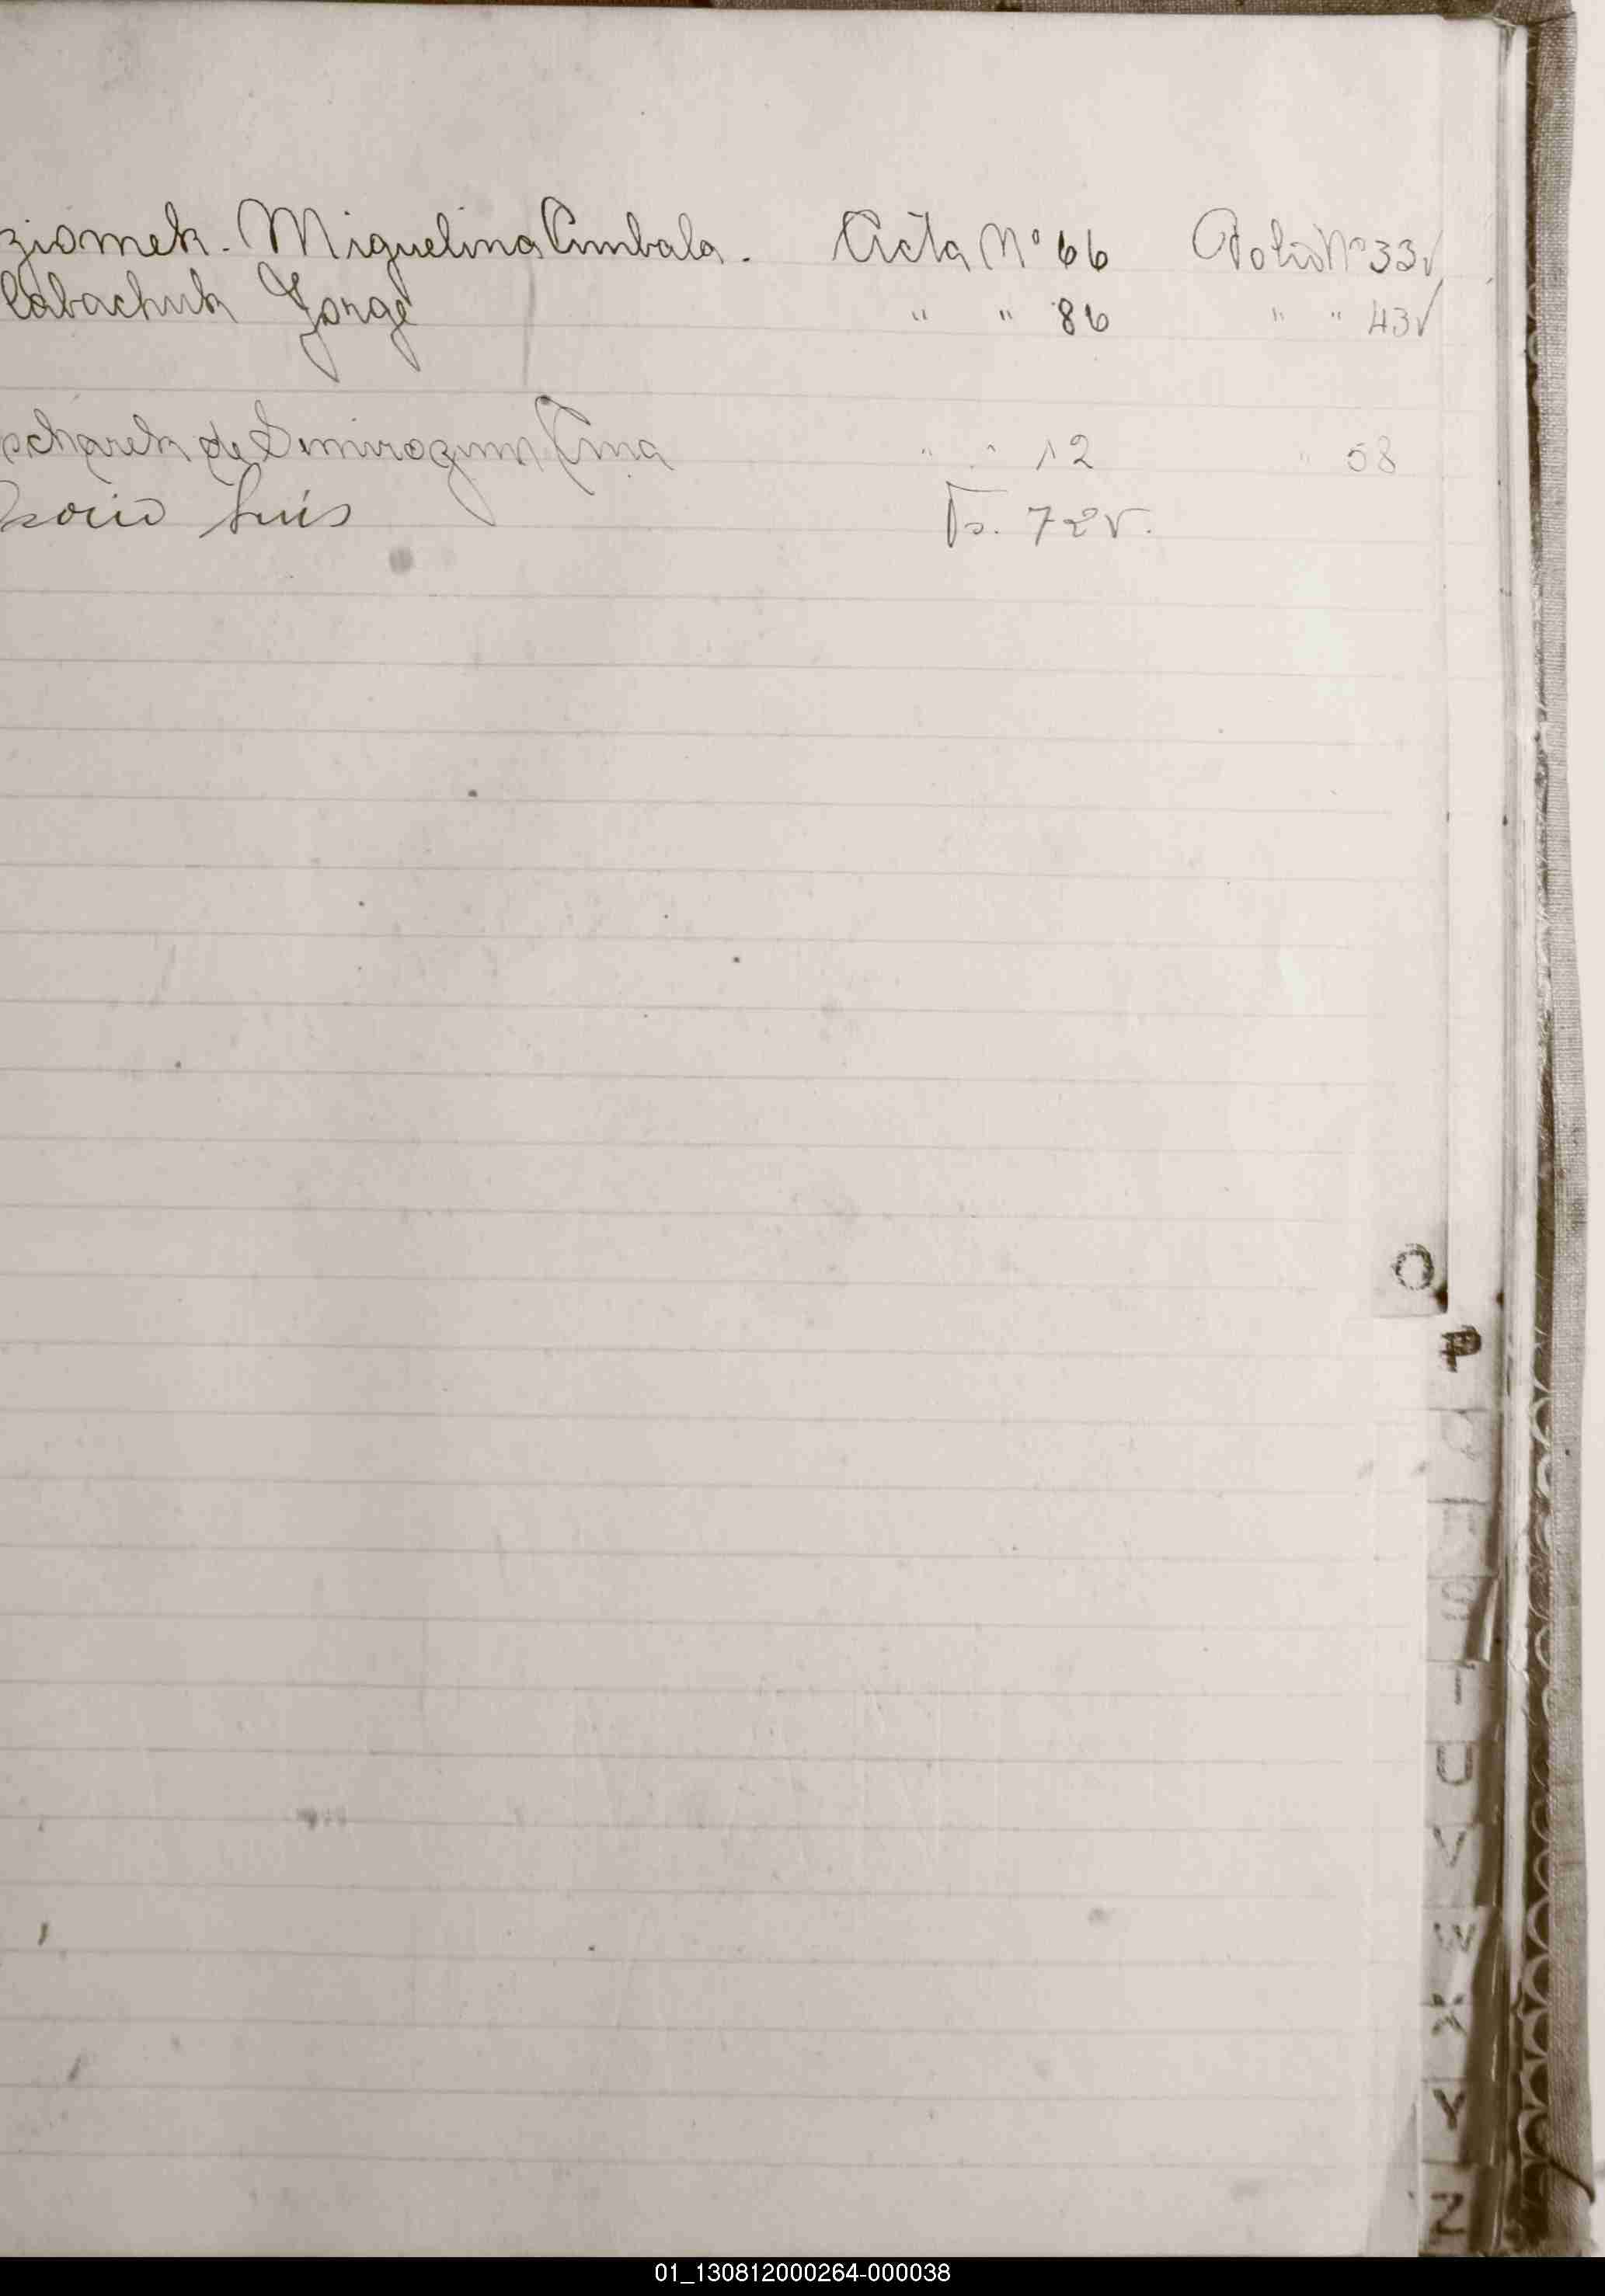 ziomek. Miguelina Ambala. Acta Nº 66 Folio Nº 33v
labachuk Jorge " " 86 " " 43v
scharek de Ana " " 12 " 58
Luis Fo. 72v.
O
P
S
T
U
V
W
X
Y
Z
01_130812000264-000038